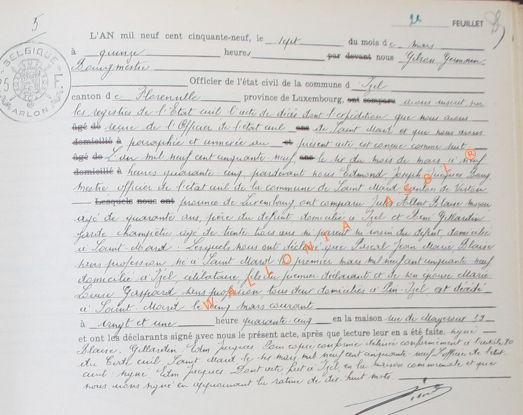 5
FEUILLET
BELGIQUE
ARLON
L'AN mil neuf cent cinquante-neuf, le sept du mois de mars
à quinze heures par devant nous Gilson Germain
Bourgmestre
Officier de l'état civil de la commune d Izel
canton de Florenville province de Luxembourg, ont comparu avons inscrit sur
les registres de l'Etat civil l'acte de décès dont l'expédition que nous avons
âgé de reçue de l'Officier de l'état civil ans de Saint Mard et que nous avons
domicilié à paraphée et annexée au présent acte est conçue comme suit
âgé de L'an mil neuf cent cinquante neuf ans le six du mois de mars à neuf
domicilié à heures quarante cinq, pardevant nous Edmond Joseph Jacques Bourg
mestre officier de l'état civil de la commune de Saint Mard canton de Virton
Lesquels nous ont province de Luxembourg ont comparu Albert Blaise
âgé de quarante ans, père du défunt domicilié à Izel et Gillardin
garde champêtre âgé de trente ans non parent ni voisin du défunt domicilié
à Saint Mard. Lesquels nous ont déclaré que Pascal Jean Marie Blaise
sans profession né à Saint Mard le premier mars mil neuf cent cinquante neuf
domicilié à Izel, célibataire, fils du premier déclarant et de son épouse Marie
Louise Gaspard sans profession, tous deux domiciliés à Izel est décédé
à Saint Mard le cinq mars courant
à vingt et une heure quarante cinq en la maison rue de Mageroux 19
et ont les déclarants signé avec nous le présent acte, après que lecture leur en a été faite. signé
Blaise. Gillardin. Edm Jacques. Pour copie conforme délivrée conformément à l'article 80
du Code civil, Saint Mard le six mars mil neuf cent cinquante neuf l'officier de l'état
civil signé Edm Jacques. Dont acte, fait à Izel, en la maison communale et que
nous avons signé en approuvant la rature de dix huit mots.
WALLONIA ASBL ®